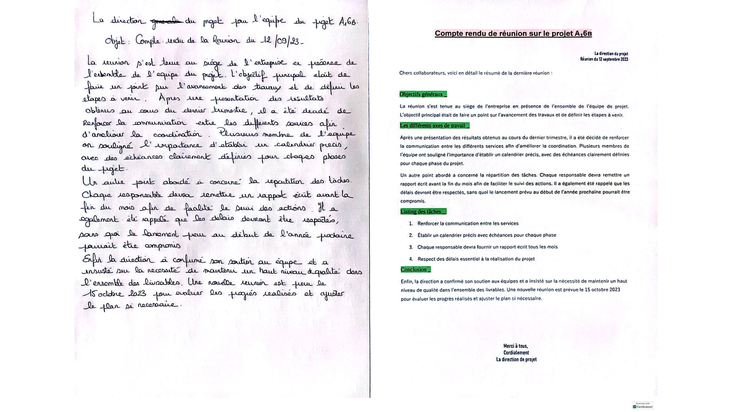 La direction du projet pour l'équipe du projet A.6B.
Objet : Compte rendu de la Réunion du 12/09/23.
La réunion s'est tenue au siège de l'entreprise en présence de
l'ensemble de l'equipe du projet. L'objectif principal était de
faire un point sur l'avancement des travaux et de définir les
étapes à venir. Après une présentation des résultats
obtenus au cours du dernier trimestre, il a été décidé de
renforcer la communication entre les différents services afin
d'améliorer la coordination. Plusieurs membre de l'equipe
on souligné l'importance d'établir un calendrier précis,
avec des échéances clairement définies pour chaques phases
du projet.
Un autre point abordé a concerné la repartition des tâches
Chaque responsable devra remettre un rapport écrit avant la
fin du mois afin de facilité le suivi des actions. Il a
également été rappelé que les délais devront être respectés,
sans quoi le lancement prévu au début de l'année prochaine
pourrait être compromis
Enfin la direction à confirmé son soutien au équipe et a
insisté sur la nécessité de maintenir un haut niveau de qualité dans
l'ensemble des livrables. Une nouvelle reunion est prévu le
15 octobre 2023 pour évaluer les progrès réalisés et ajuster
le plan si nécessaire.
Compte rendu de réunion sur le projet A.6B
La direction du projet
Réunion du 12 septembre 2023
Chers collaborateurs, voici en détail le résumé de la dernière réunion :
Objectifs généraux :
La réunion s'est tenue au siege de l'entreprise en présence de l'ensemble de l'équipe du projet.
L'objectif principal était de faire un point sur l'avancement des travaux et de définir les étapes à venir.
Les différents axes de travail :
Après une présentation des résultats obtenus au cours du dernier trimestre, il a été décidé de
renforcer la communication entre les différents services afin d'améliorer la coordination. Plusieurs membres de
l'équipe ont souligné l'importance d'établir un calendrier précis, avec des échéances clairement définies
pour chaque phase du projet.
Un autre point abordé a concerné la repartition des tâches. Chaque responsable devra remettre un
rapport écrit avant la fin du mois afin de faciliter le suivi des actions. Il a également été rappelé que les
délais devront être respectés, sans quoi le lancement prévu au début de l'année prochaine pourrait être
compromis.
Listing des tâches :
1. Renforcer la communication entre les services
2. Établir un calendrier précis avec échéances pour chaque phase
3. Chaque responsable devra fournir un rapport écrit tous les mois
4. Respect des délais essentiel à la réalisation du projet
Conclusion :
Enfin, la direction a confirmé son soutien aux équipes et a insisté sur la nécessité de maintenir un haut
niveau de qualité dans l'ensemble des livrables. Une nouvelle réunion est prévue le 15 octobre 2023
pour évaluer les progrès réalisés et ajuster le plan si nécessaire.
Merci à tous,
Cordialement
La direction de projet